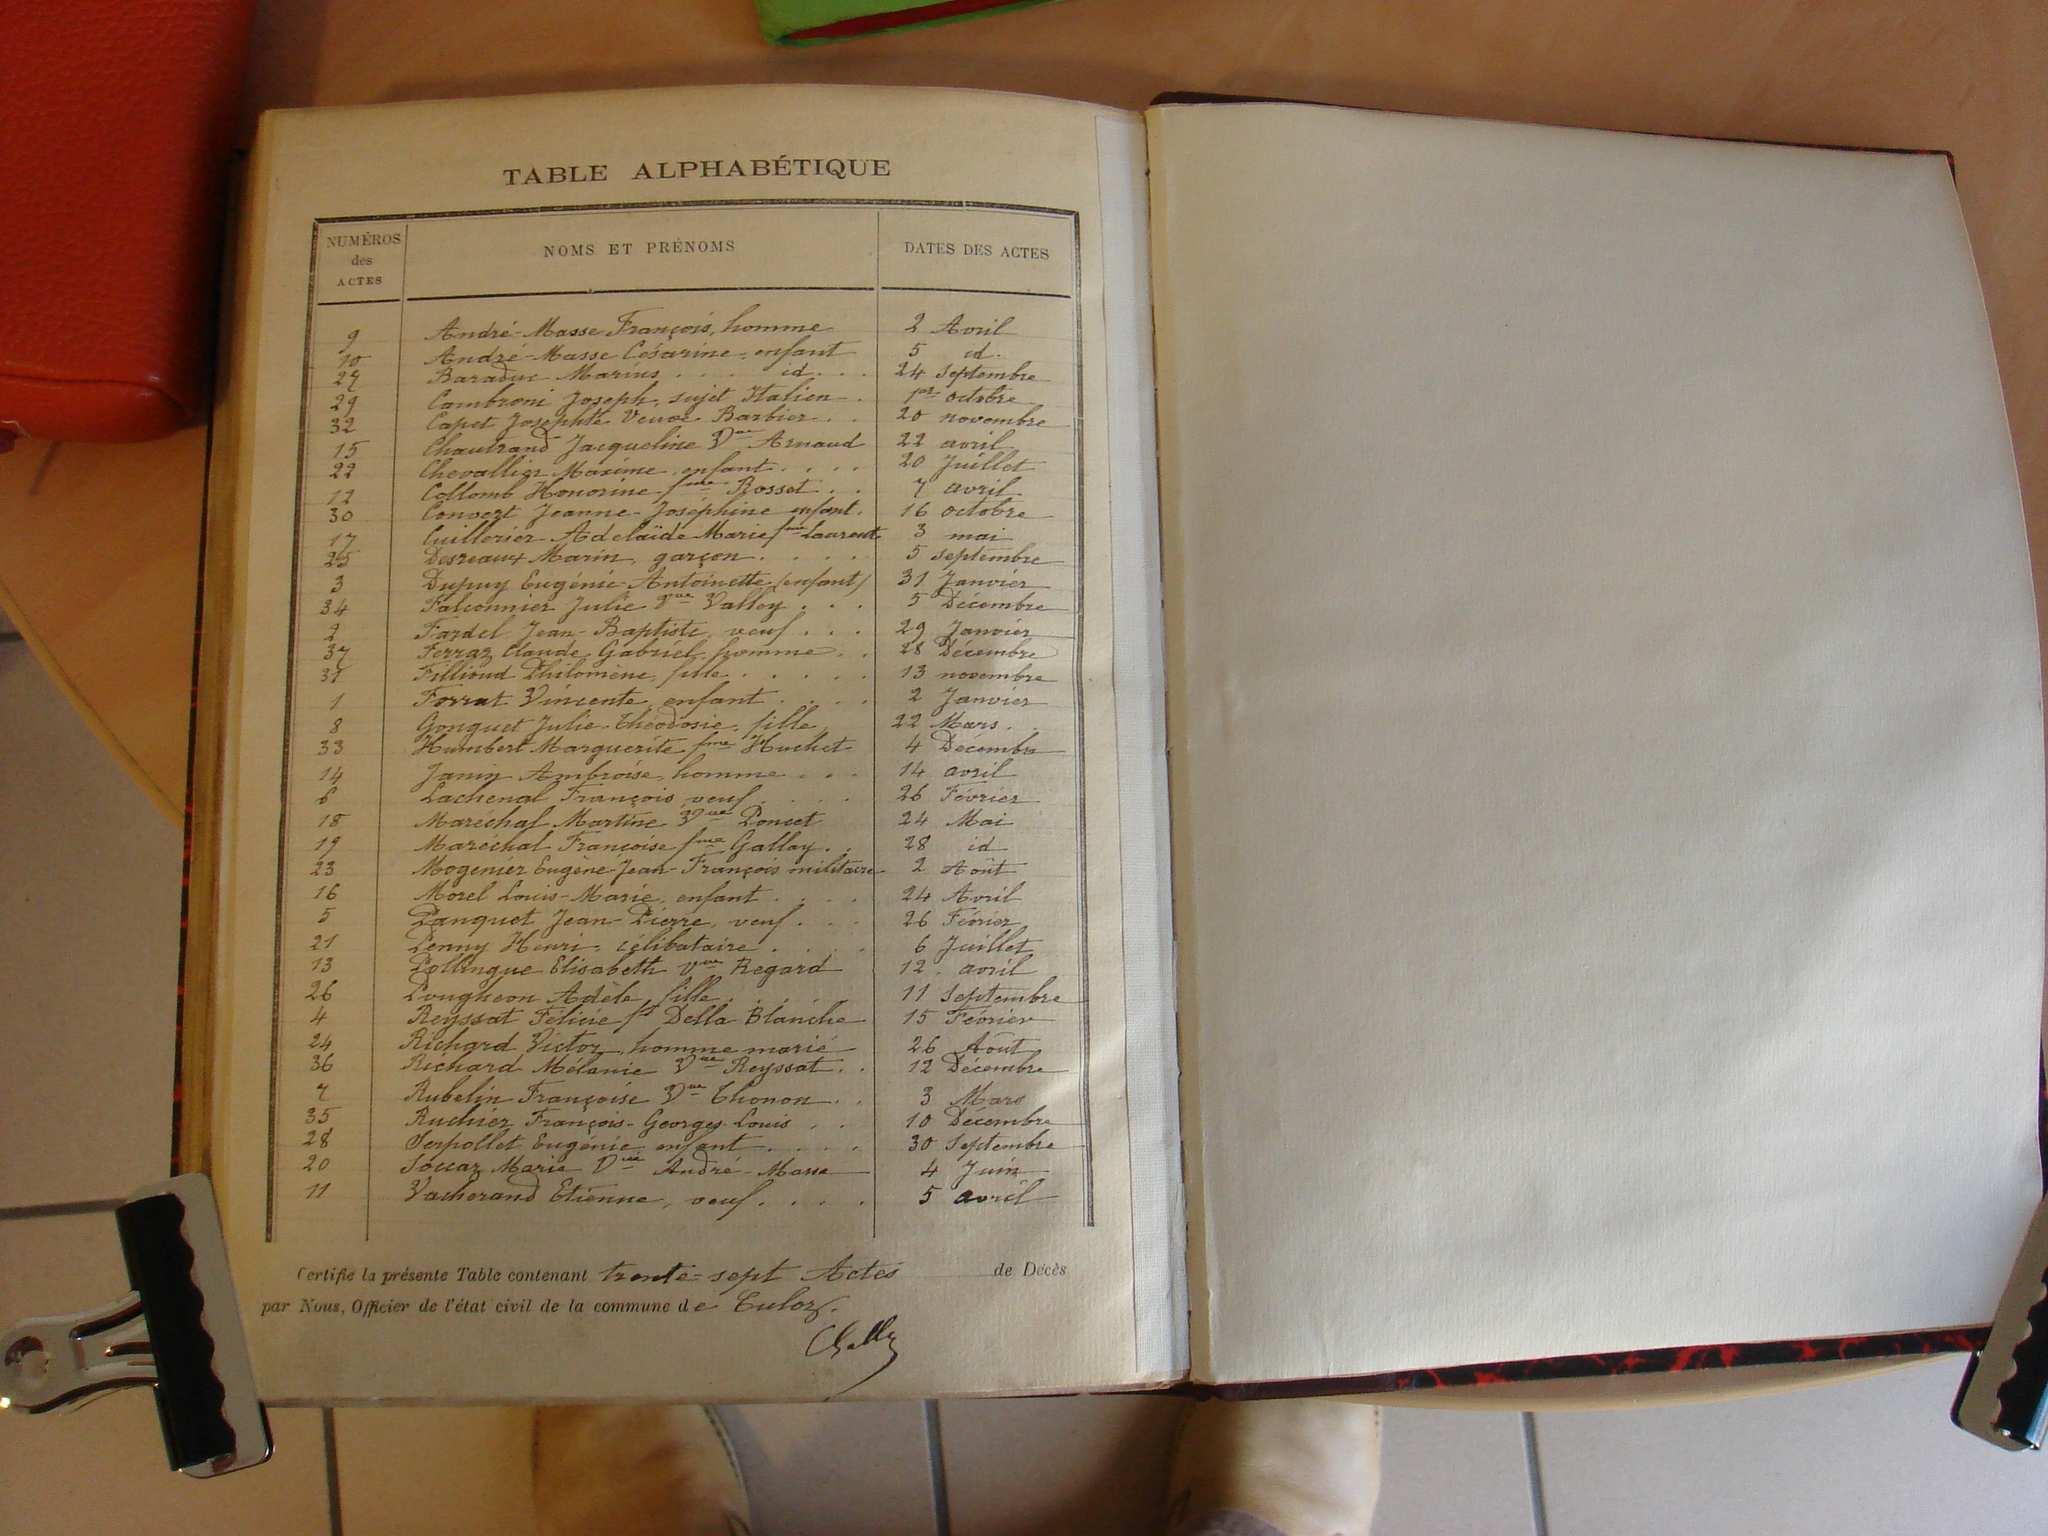 TABLE ALPHABÉTIQUE
NUMÉROS des ACTES NOMS ET PRÉNOMS DATES DES ACTES
9 André-Masse François, homme 2 Avril
10 André-Masse Césarine, enfant 5 id.
27 Baraduc Marius . . . id . . . 24 septembre
29 Cambroni Joseph, sujet Italien . 1er octobre
32 Capet Josephte Veuve Barbier . . 20 novembre
15 Chautrand Jacqueline Vve Arnaud 22 avril
22 Chevallier Maxime, enfant . . . . 20 Juillet
12 Collomb Honorine fme Rosset . . 7 avril
30 Convert Jeanne-Joséphine enfant. 16 octobre
17 Cuillerier Adelaïde Marie fme Laurent 3 mai
25 Desreaux Marin, garçon . . . . 5 septembre
3 Dupuy Eugénie-Antoinette (enfant) 31 Janvier
34 Falconnier Julie Vve Valley . . . 5 Décembre
2 Fardel Jean-Baptiste, veuf . . . 29 Janvier
37 Ferraz Claude Gabriel, homme . . 28 Décembre
31 Fillioud Philomène, fille . . . . . 13 novembre
1 Forrat Vincente, enfant . . . . 2 Janvier
8 Gonguet Julie-Théodosie, fille 22 Mars.
33 Humbert Marguerite fme Huchet 4 Décembre
14 Janin Ambroise, homme . . . 14 avril
6 Lachenal François, veuf . . . . 26 Février
18 Maréchal Martine Vve Poncet 24 Mai
19 Maréchal Françoise fme Gallay . . 28 id
23 Mogenier Eugène Jean-François militaire 2 Août
16 Morel Louis-Marie, enfant . . . . 24 Avril
5 Panquet Jean-Pierre, veuf . . . 26 Février
21 Penny Henri, célibataire . . . . 6 Juillet
13 Pollingue Elisabeth vve Regard 12. avril
26 Pougheon Adèle, fille . . . . 11 septembre
4 Reyssat Félicie fe Della Blanche 15 Février
24 Richard Victor, homme marié 26 Août
36 Richard Mélanie Vve Reyssat . . 12 Décembre
7 Rubelin Françoise Vve Thonon . . 3 Mars
35 Ruchier François-Georges-Louis . . 10 Décembre
28 Serpollet Eugénie, enfant . . . . 30 septembre
20 Soccaz Marie Vve André-Masse 4 Juin
11 Vacherand Etienne, veuf . . . . 5 avril
Certifie la présente Table contenant trente-sept Actes de Décès
par Nous, Officier de l'état civil de la commune de Culoz.